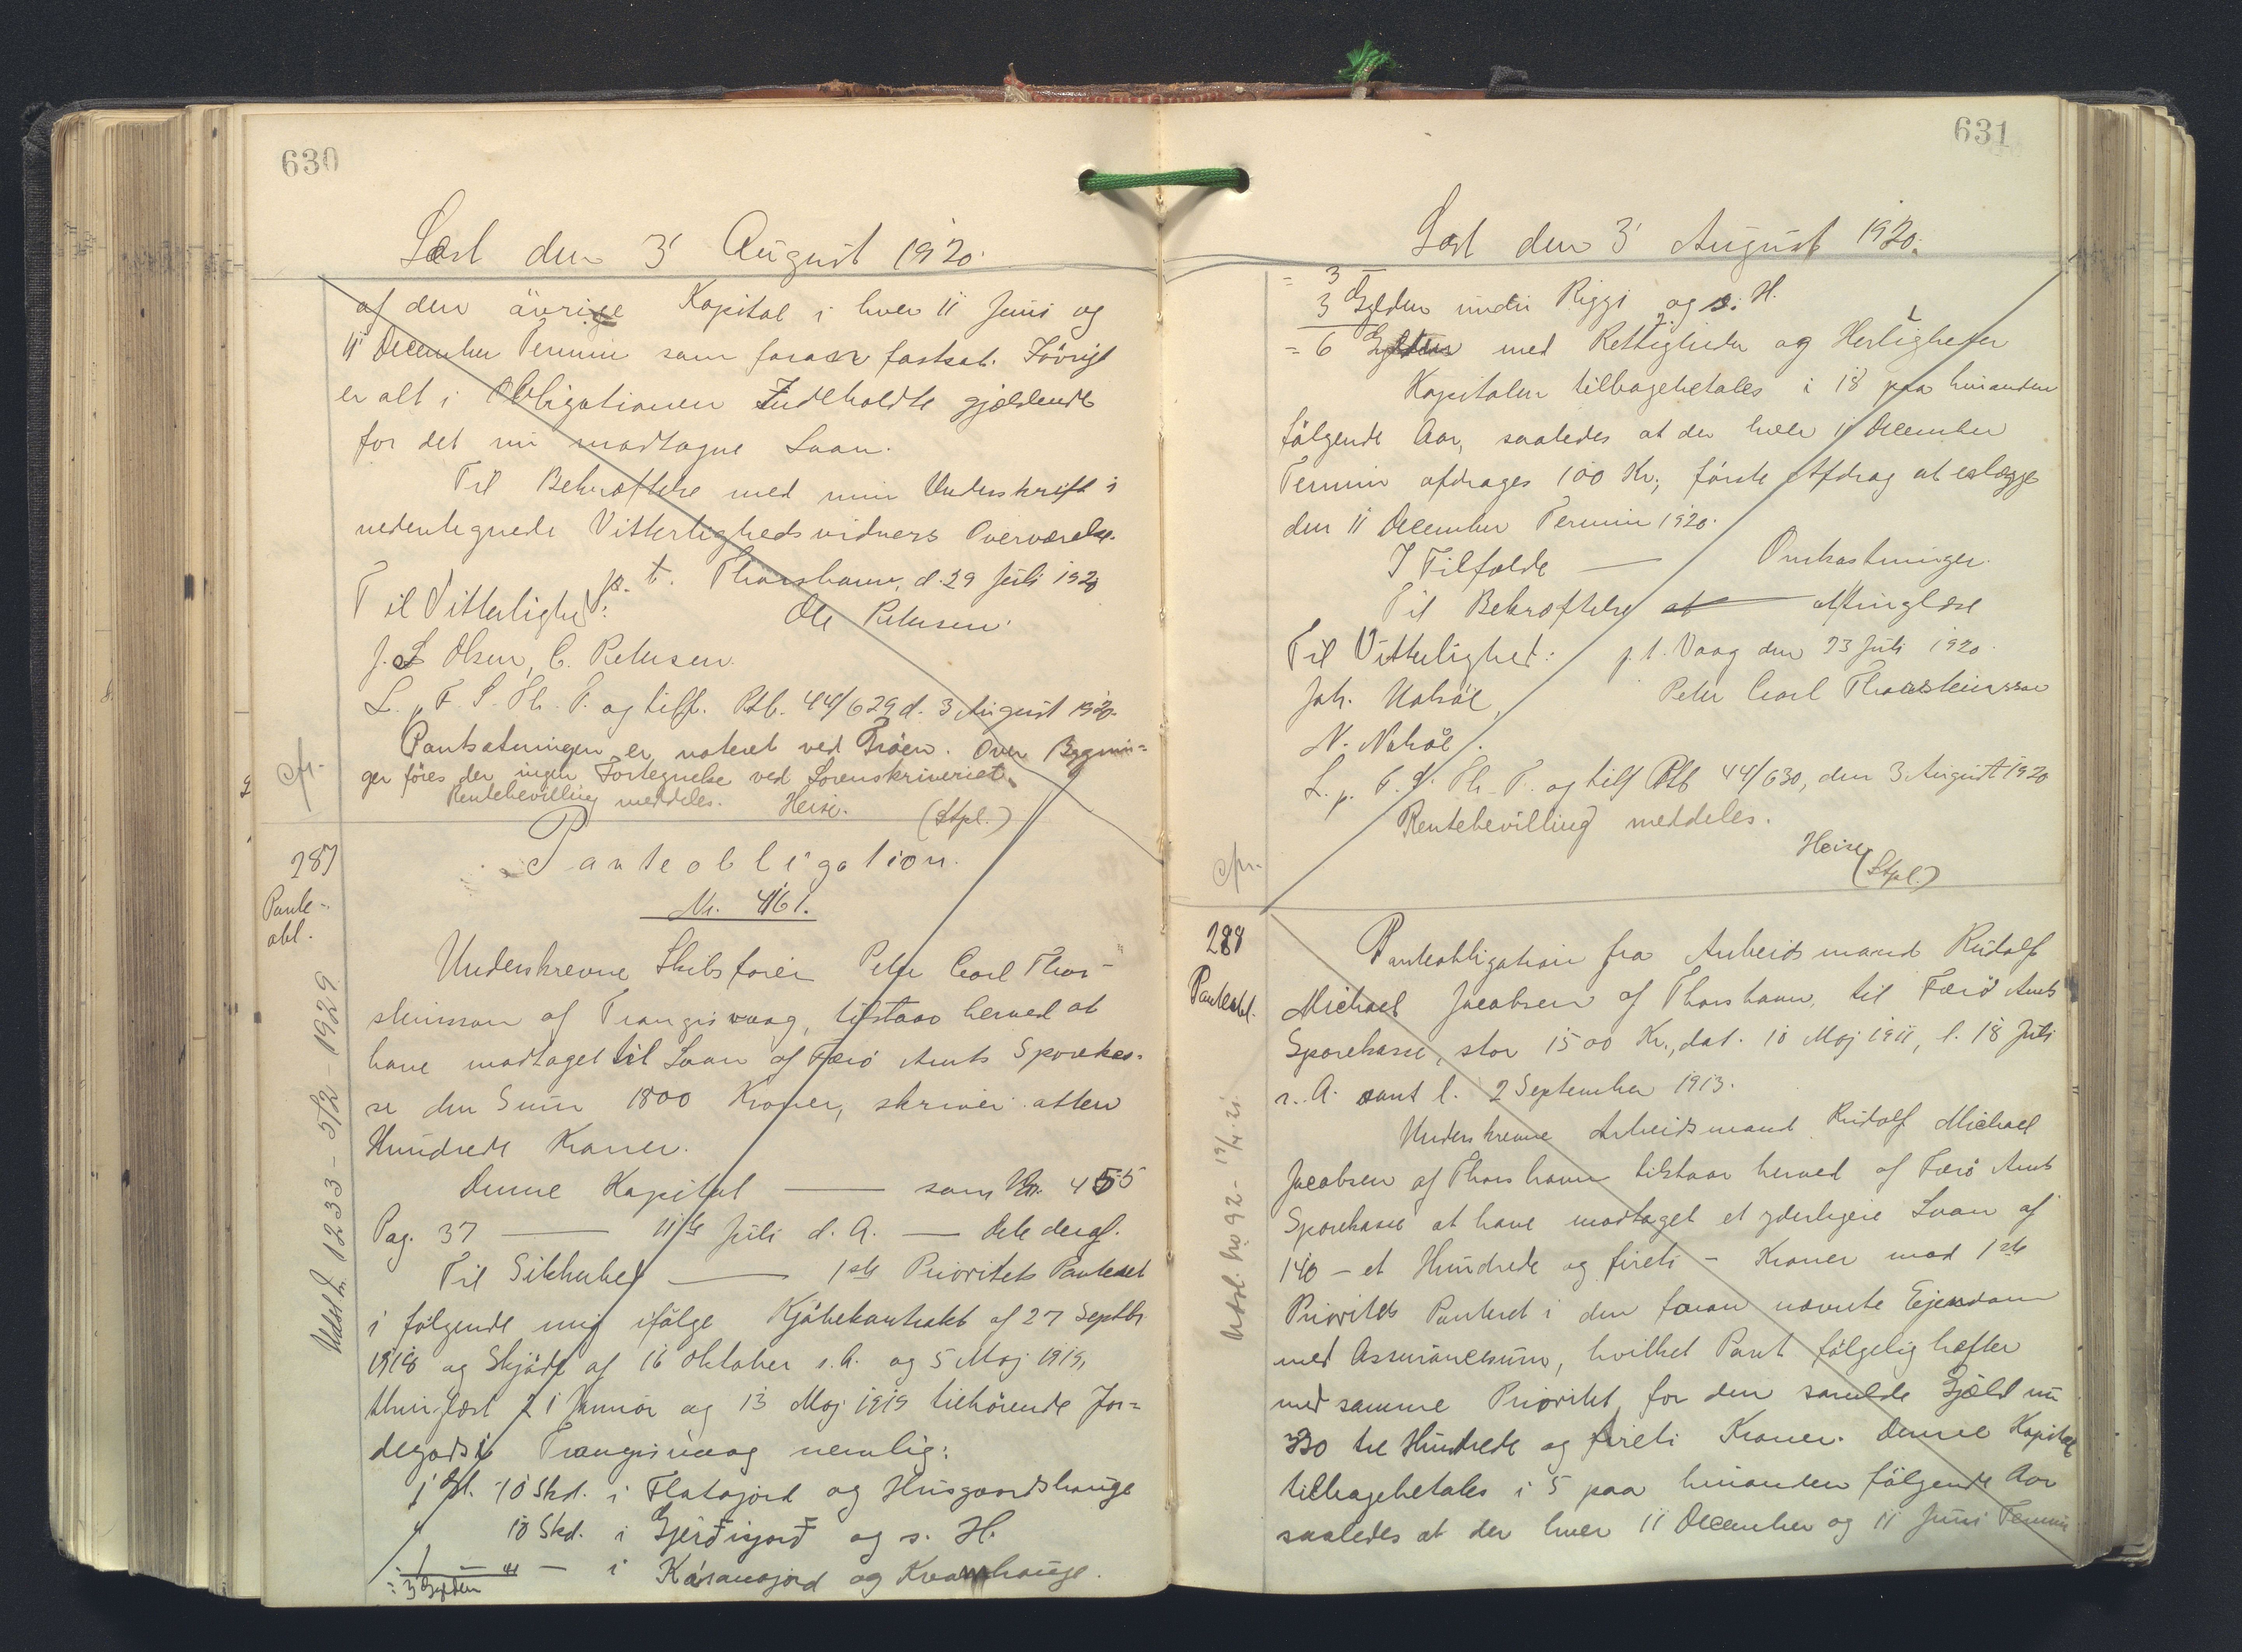 630
Læst den 3' August 1920.
af den øvrige Kapital i hver 11 Juni og
11 December Termin som foran fastsat. Iøvrigt
er alt i Obligationen Indeholdte gjældende
for det nu modtagne Laan.
Til Bekræftelse med min Underskrift i
undertegnede Vitterlighedsvidners Overværelse.
p. t. Thorshavn, d. 29 Juli 1920
Til Vitterlighed:
Ole Petersen.
J. S Olsen, C. Petersen.
L. p. F. S. Th. P. og tilf. Ptb. 44/629 d. 3 August 1920.
Pantsætningen er noteret ved Frøen. Over Bygnin=
ger føres der ingen Fortegnelse ved Sorenskriveriet.
Rentebevilling meddeles. Heise. (Stpl.)
cfr.
287
Pante-
obl.
Udsl. 1233 - 5/2 - 1929
Panteobligation.
Nr. 461.
Underskrevne Skibsfører Peter Carl Thor-
steinsson af Trangisvaag, tilstaar herved at
have modtaget til Laan af Færø Amts Sparekas=
se den Sum 1800 Kroner, skriver atten
Hundrede Kroner.
Denne Kapital — som Nr. 455
Pag. 37 — 11te Juli d. A. — Dele dergl.
Til Sikkerhed — 1ste Prioritets Panteret
i følgende mig ifølge Kjøbekontrakt af 27 Septbr.
1918 og Skjøde af 16 Oktober s. A. og 5 Maj 1919,
thinglæst 21 Januar og 13 Maj 1919 tilhørende Jor=
degods i Trangisvaag nemlig:
1 Gl. 10 Skd. i Flatajord og Husgaardshauge
10 Skd. i Gjerðisjorð og s. H.
1 — " — i Káranajord og Kvannhauge.
= 3 Gylden
631
Læst den 3' August 1920.
= 3
3 Gylden undir Riggi og s. H.
= 6 Gylden med Rettigheder og Herligheder
Kapitalen tilbagebetales i 18 paa hinanden
følgende Aar, saaledes at der hver 11 December
Termin afdrages 100 Kr., første Afdrag at erlægge
den 11 December Termin 1920.
I Tilfælde — Omkostninger.
Til Bekræftelse at — thinglæse
Til Vitterlighed: p. t. Vaag den 23 Juli 1920.
Joh. Nolsøe, Peter Carl Thorsteinsson
N. Nolsøe.
L. p. F. S. Th. P. og tilf Ptb 44/630, den 3 August 1920
Rentebevilling meddeles.
Heise
(Stpl.)
cfr.
288
Panteobl.
Udsl. No 92 - 19/4. 21.
Panteobligation fra Arbeidsmand Rudolf
Michael Jacobsen af Thorshavn, til Færø Amts
Sparekasse, stor 1500 Kr., dat. 10 Maj 1911, l. 18 Juli
s. A. samt l. 2 September 1913.
Underskrevne Arbeidsmand Rudolf Michael
Jacobsen af Thorshavn tilstaar herved af Færø Amts
Sparekasse at have modtaget et yderligere Laan af
140 — et Hundrede og fireti — Kroner mod 1ste
Prioritets Panteret i den foran nævnte Ejendom
med Assurancesum, hvilket Pant følgelig hæfter
med samme Prioritet for den samlede Gjæld nu
tre Hundrede og fireti Kroner. Denne Kapital
tilbagebetales i 5 paa hinanden følgende Aar
saaledes at der hver 11 December og 11 Juni Termin